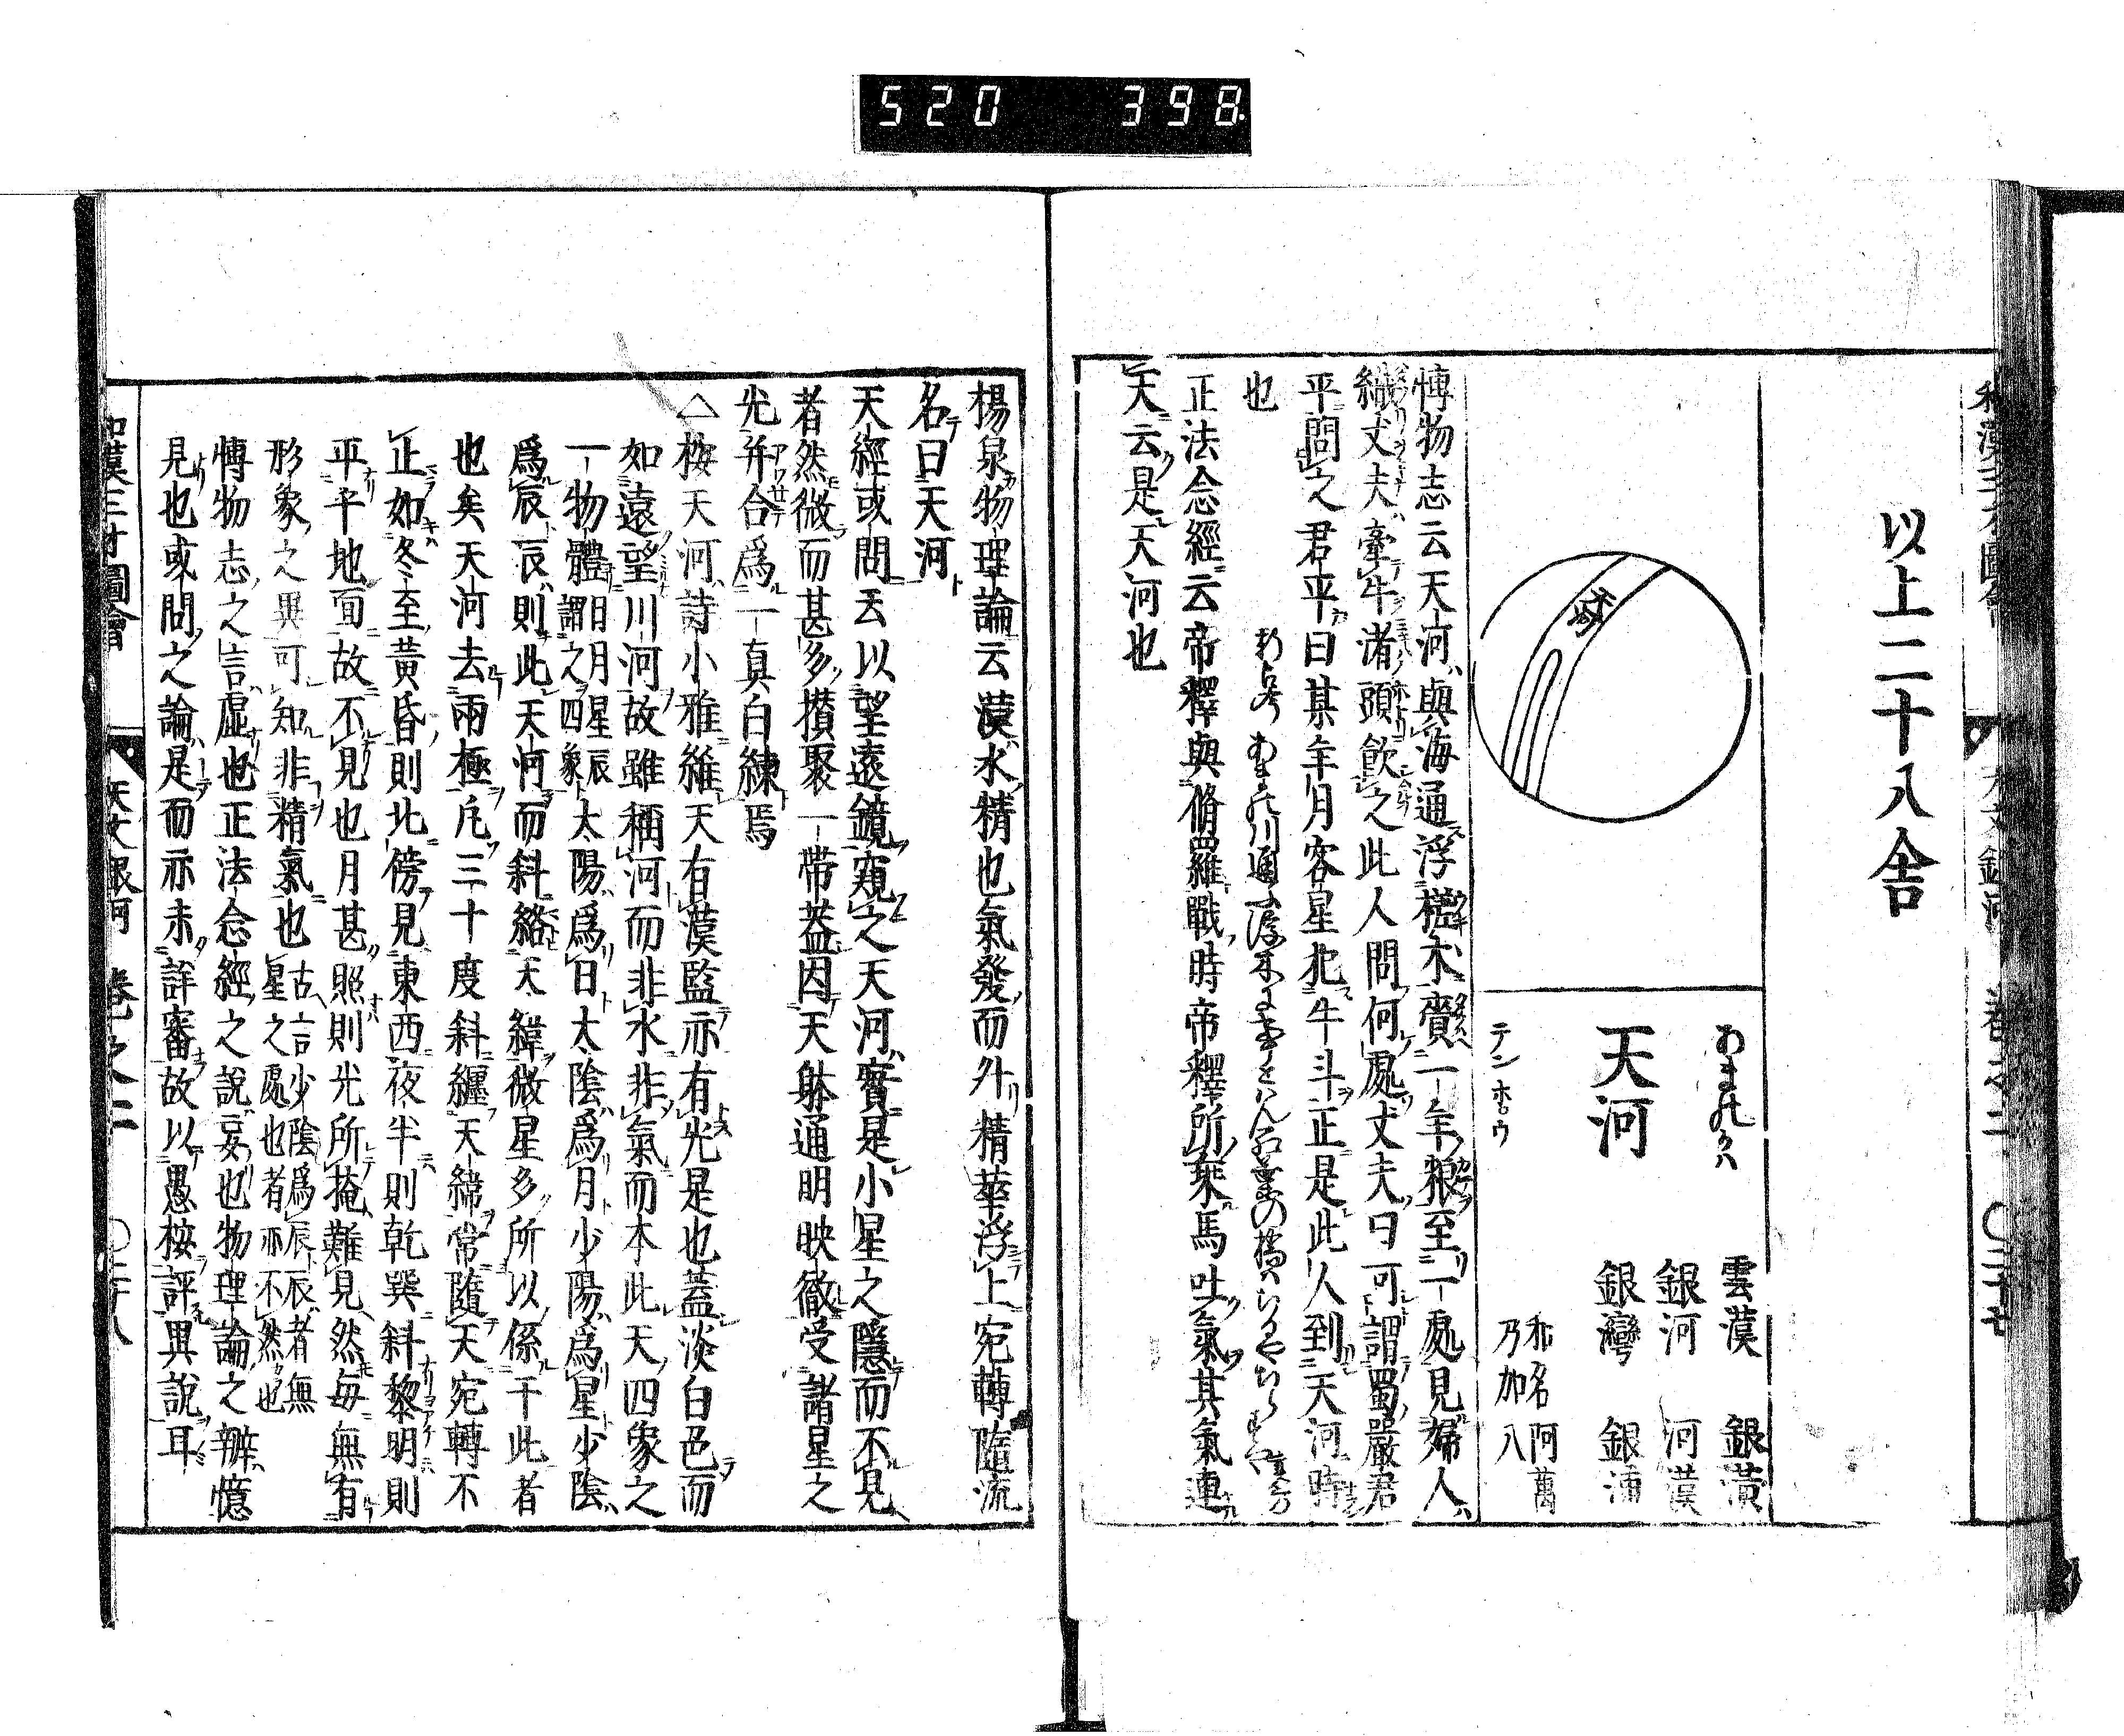 520 398
以上二十八舍
天河
あまのかは
テンホウ
雲漢 銀潢
銀河 河漢
銀灣 銀浦
和名 阿萬
乃加八
天河
博物志云天河與海通浮槎木齎一年粮至一處見婦人
織丈夫牽牛渚頭飮之此人問何處丈夫曰可謂蜀嚴君
平問之君平曰某年月客星犯牛斗正是此人到天河時
也
正法念經云帝釋與脩羅戰時帝釋所乘馬吐氣其氣連
天云是天河也
楊泉物理論云漢水精也氣發而外精華浮上宛轉隨流
名曰天河
天經或問云以望遠鏡窺之天河實是小星之隱而不見
者然微而甚多攅聚一帶葢因天躰通明映徹受諸星之
光并合爲一眞白練焉
△桉天河詩小雅維天有漢監亦有光是也蓋淡白色而
如遠望川河故雖稱河而非水非氣而本此天四象之
一物體日月星辰謂之四象太陽爲日太陰爲月少陽爲星少陰
爲辰辰則此天河而斜絡天緯微星多所以係于此者
也矣天河去兩極凡三十度斜纒天緯常隨天宛轉不
正如冬至黃昏則北傍見東西夜半則乾巽斜黎明則
平平地面故不見也月甚照則光所掩難見然毎無有
形象之異可知非精氣也古言少陰爲辰辰者無星之處也者亦不然也
博物志之言虛也正法念經之說妄也物理論之辯憶
見也或問之論是而亦未詳審故以愚桉評異說耳
和漢三才圖會 天文銀河 卷之二